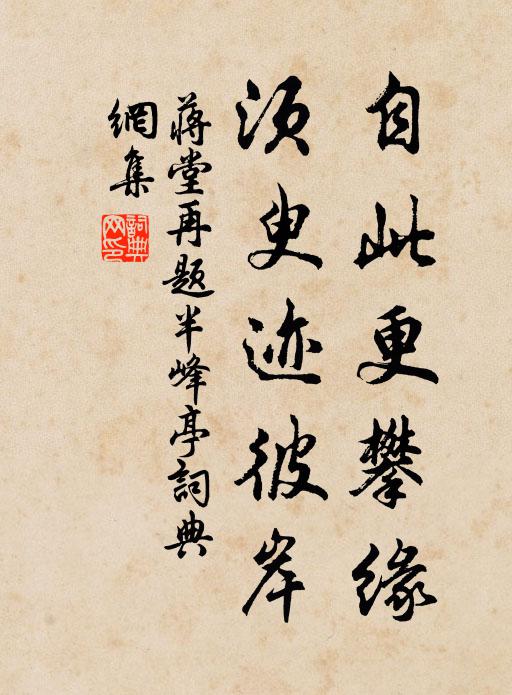 自此更攀缘
须臾迹彼岸
蒋堂再题半峰亭词典
網集
詞典網印